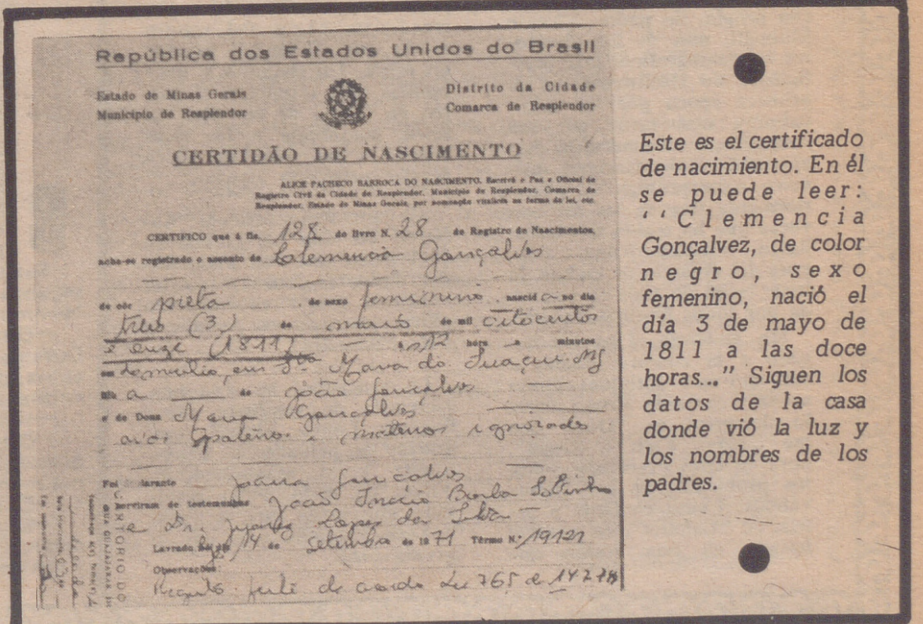 República dos Estados Unidos do Brasil
Estado de Minas Gerais
Município de Resplendor
Distrito da Cidade
Comarca de Resplendor
CERTIDÃO DE NASCIMENTO
ALICE PACHECO BARROCA DO NASCIMENTO, Escrivã e Paz e Oficial do
Registro Civil da Cidade de Resplendor, Município de Resplendor, Comarca de
Resplendor, Estado de Minas Gerais, por nomeação vitalícia na forma da lei, etc.
CERTIFICO que à fls. 128 do livro N. 28 de Registro de Nascimentos,
acha-se registrado o assento de Clemencia Gonçalves
de côr preta de sexo feminino nascid a no dia
três (3) de maio de mil oitocentos
e onze (1811) às 12 hora minutos
em domicílio, em Sta Maria do Suaçui MG
filh a de João Gonçalves
e de Dona Maria Gonçalves
avós paternos e maternos ignorados
Foi declarante Gonçalves
testemunhas João Inácio Sobrinho
e Dr. Juarez Lopes da Silva
Lavrado 14 de setembro de 1971 Têrmo N.º 19121
Observações:
de acordo 765 de
CARTÓRIO DO
Este es el certificado
de nacimiento. En él
se puede leer:
''Clemencia
Gonçalvez, de color
negro, sexo
femenino, nació el
día 3 de mayo de
1811 a las doce
horas..." Siguen los
datos de la casa
donde vió la luz y
los nombres de los
padres.